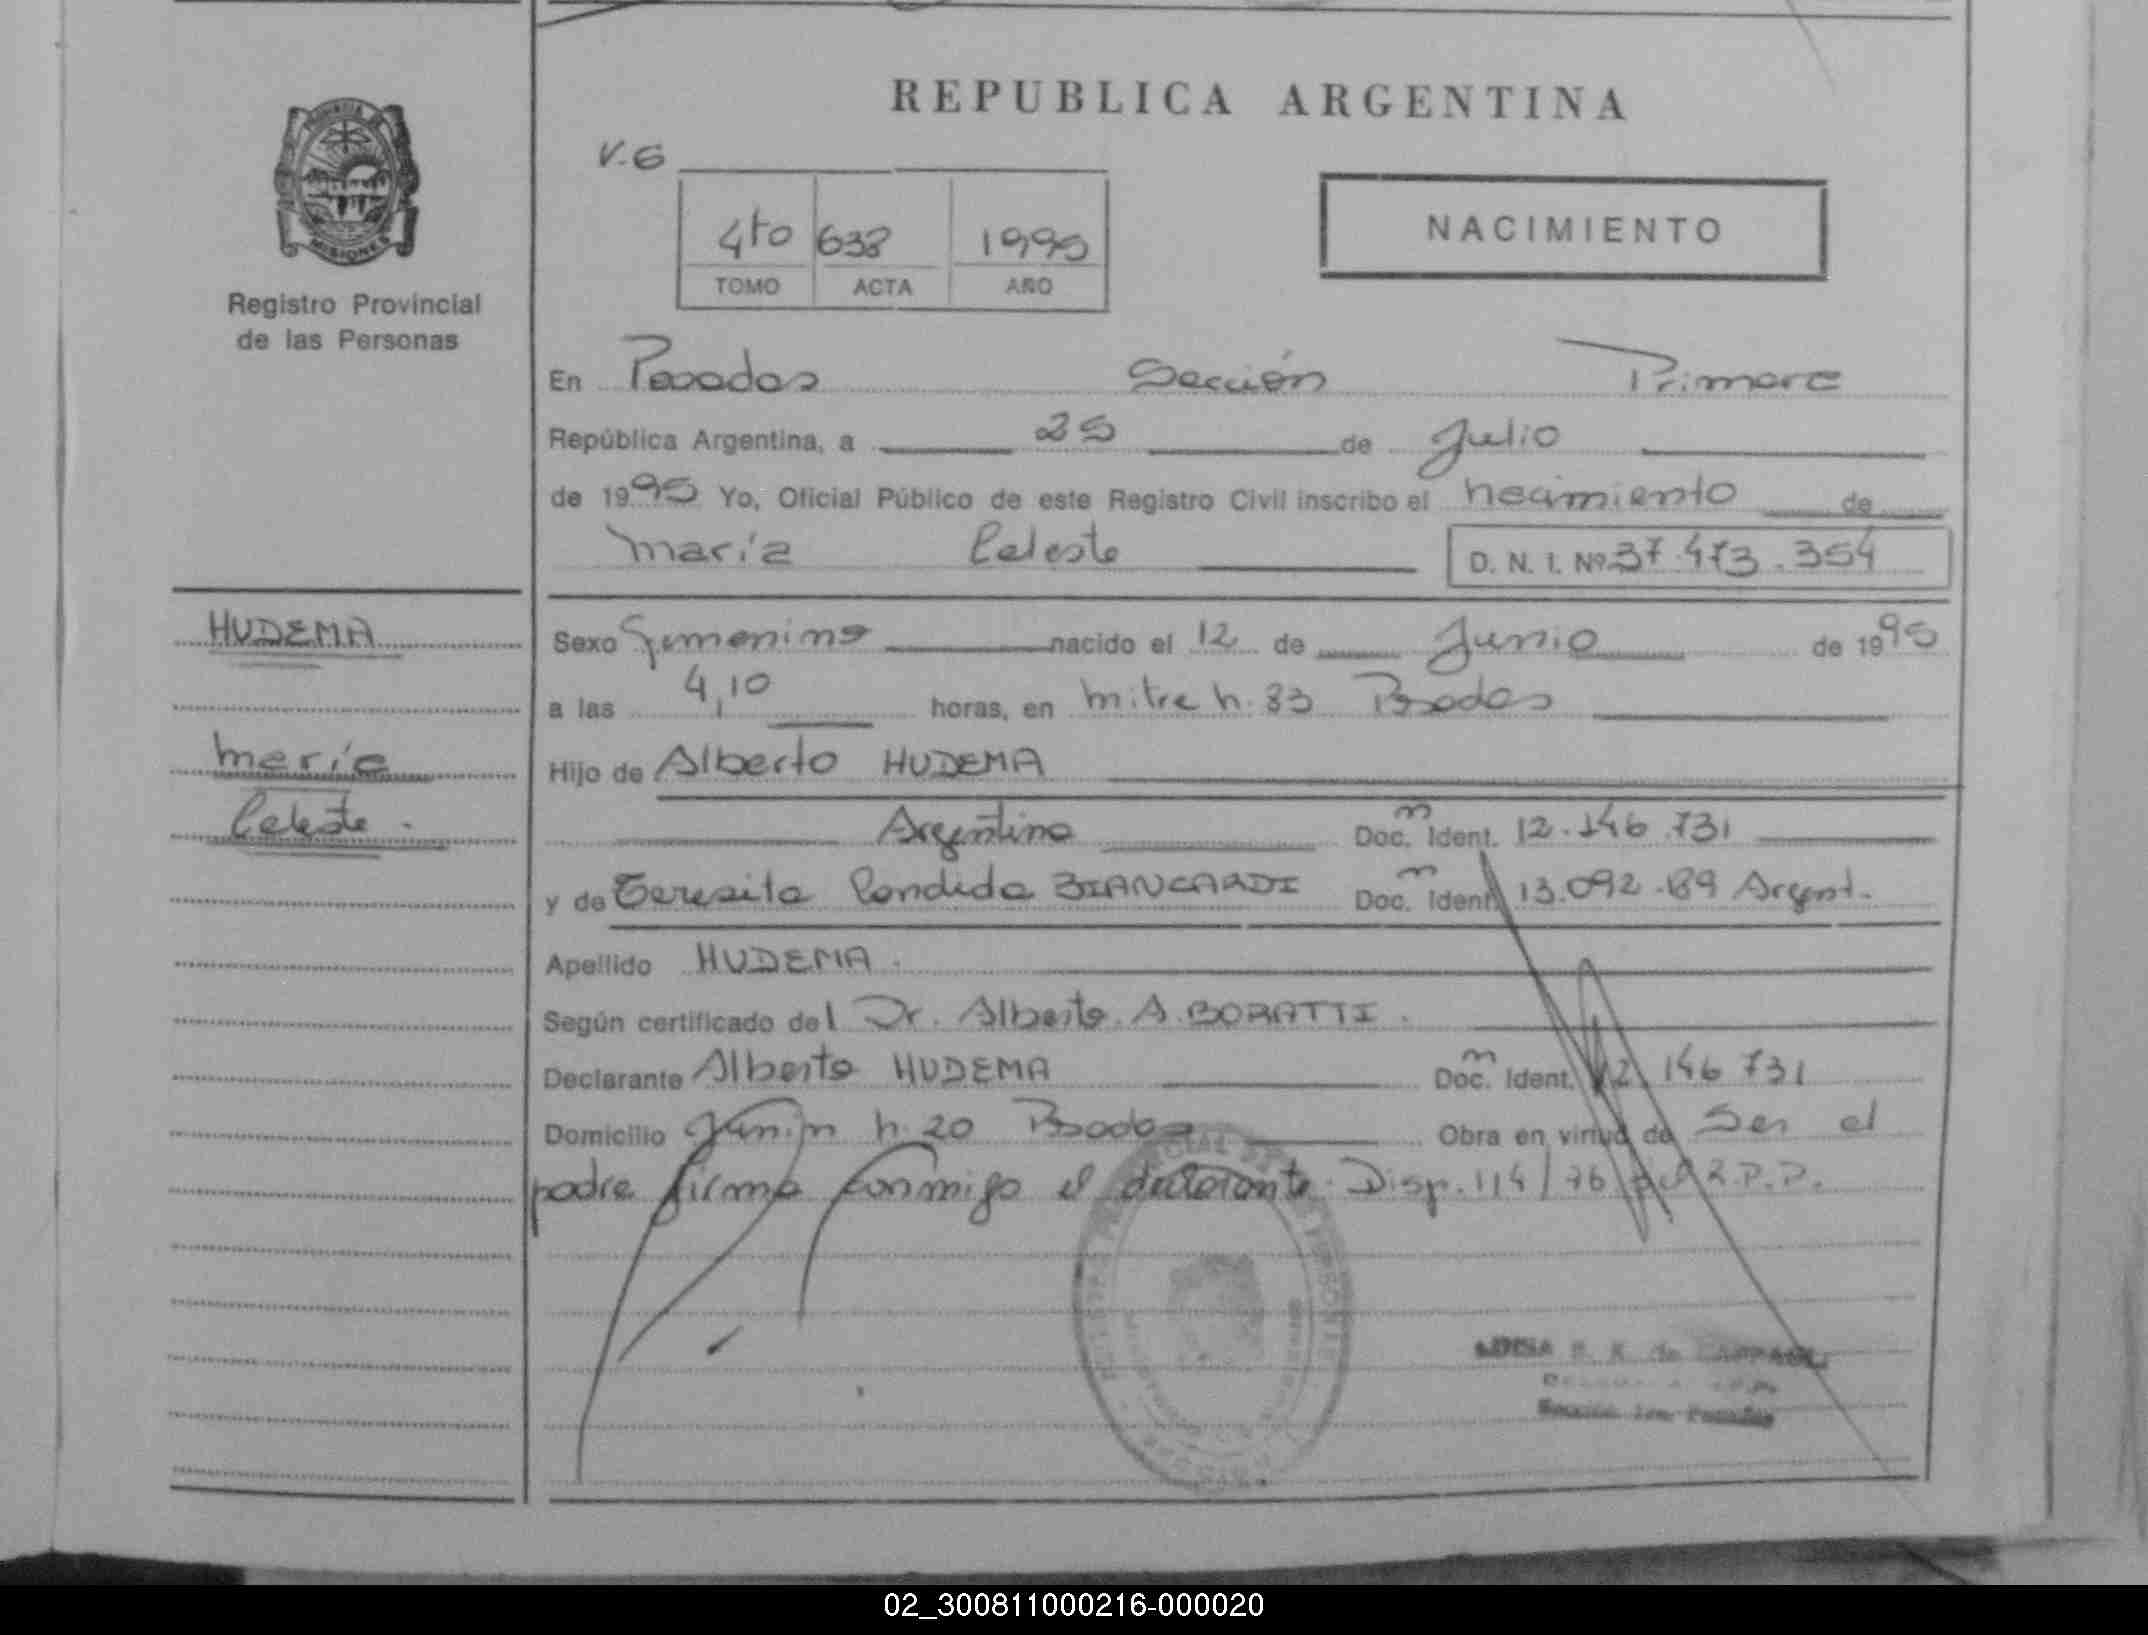 REPUBLICA ARGENTINA
V.6
NACIMIENTO
4to 638 1995
TOMO ACTA AÑO
MISIONES
Registro Provincial
de las Personas
En Posadas Sección Primera
República Argentina, a 25 de Julio
de 1995 Yo, Oficial Público de este Registro Civil inscribo el nacimiento de
María Celeste D. N. I. Nº 37.473.354
HUDEMA
Sexo Femenino nacido el 12 de Junio de 1995
a las 4,10 horas, en Mitre n. 83 Posadas
María
Hijo de Alberto HUDEMA
Celeste.
Argentino Doc. Ident. 12.146.731
y de Teresita Candida BIANCARDI Doc. Ident. 13.092.189 Argent.
Apellido HUDEMA.
Según certificado del Dr. Alberto A. BORATTI.
Declarante Alberto HUDEMA Doc. Ident. 12 146 731
Domicilio Junin n. 20 Posadas Obra en virtud de Ser el
padre firma conmigo el declarante. Disp. 114/76 R.P.P.
Sección 1ra Posadas
02_300811000216-000020